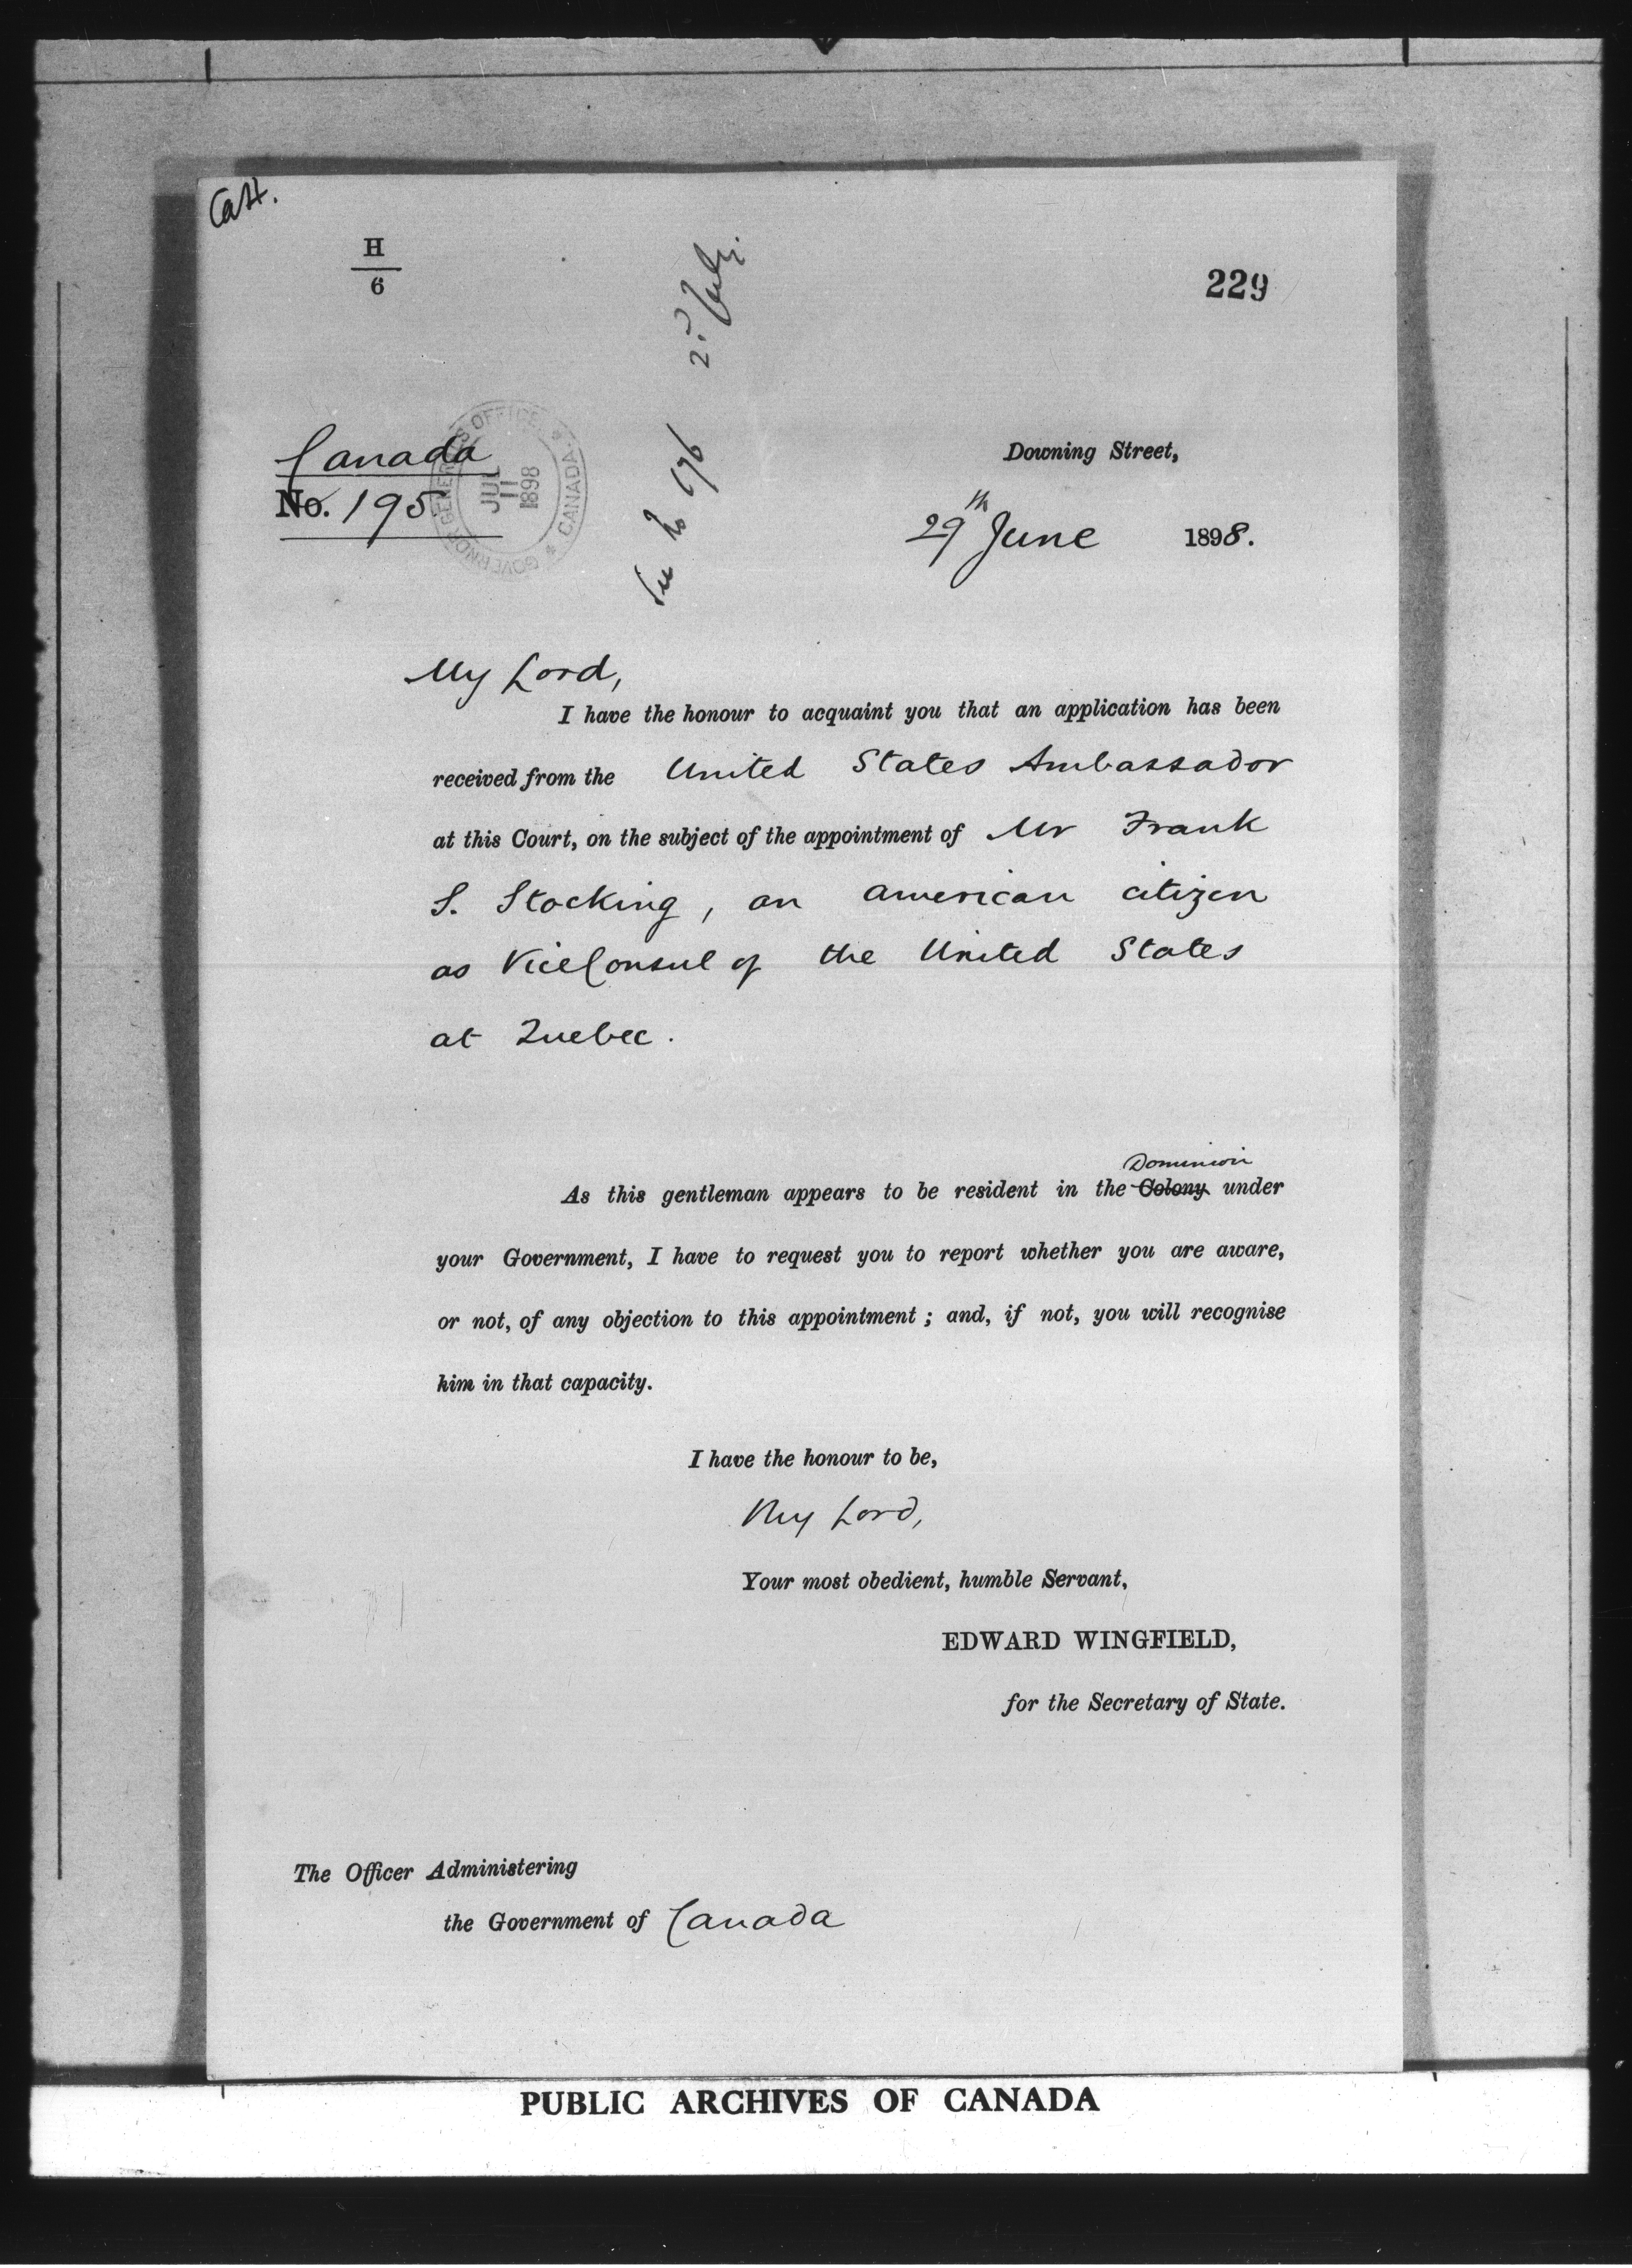 Cah.
H
6
229
Canada
No. 195
GOVERNOR GENERAL'S OFFICE * CANADA *
JUL
11
1898
Downing Street,
29th June 1898.
My Lord,
I have the honour to acquaint you that an application has been
received from the United States Ambassador
at this Court, on the subject of the appointment of Mr Frank
S. Stocking, an American citizen
as Vice Consul of the United States
at Quebec.
Dominion
As this gentleman appears to be resident in the Colony under
your Government, I have to request you to report whether you are aware,
or not, of any objection to this appointment; and, if not, you will recognise
him in that capacity.
I have the honour to be,
My Lord,
Your most obedient, humble Servant,
EDWARD WINGFIELD,
for the Secretary of State.
The Officer Administering
the Government of Canada
PUBLIC ARCHIVES OF CANADA